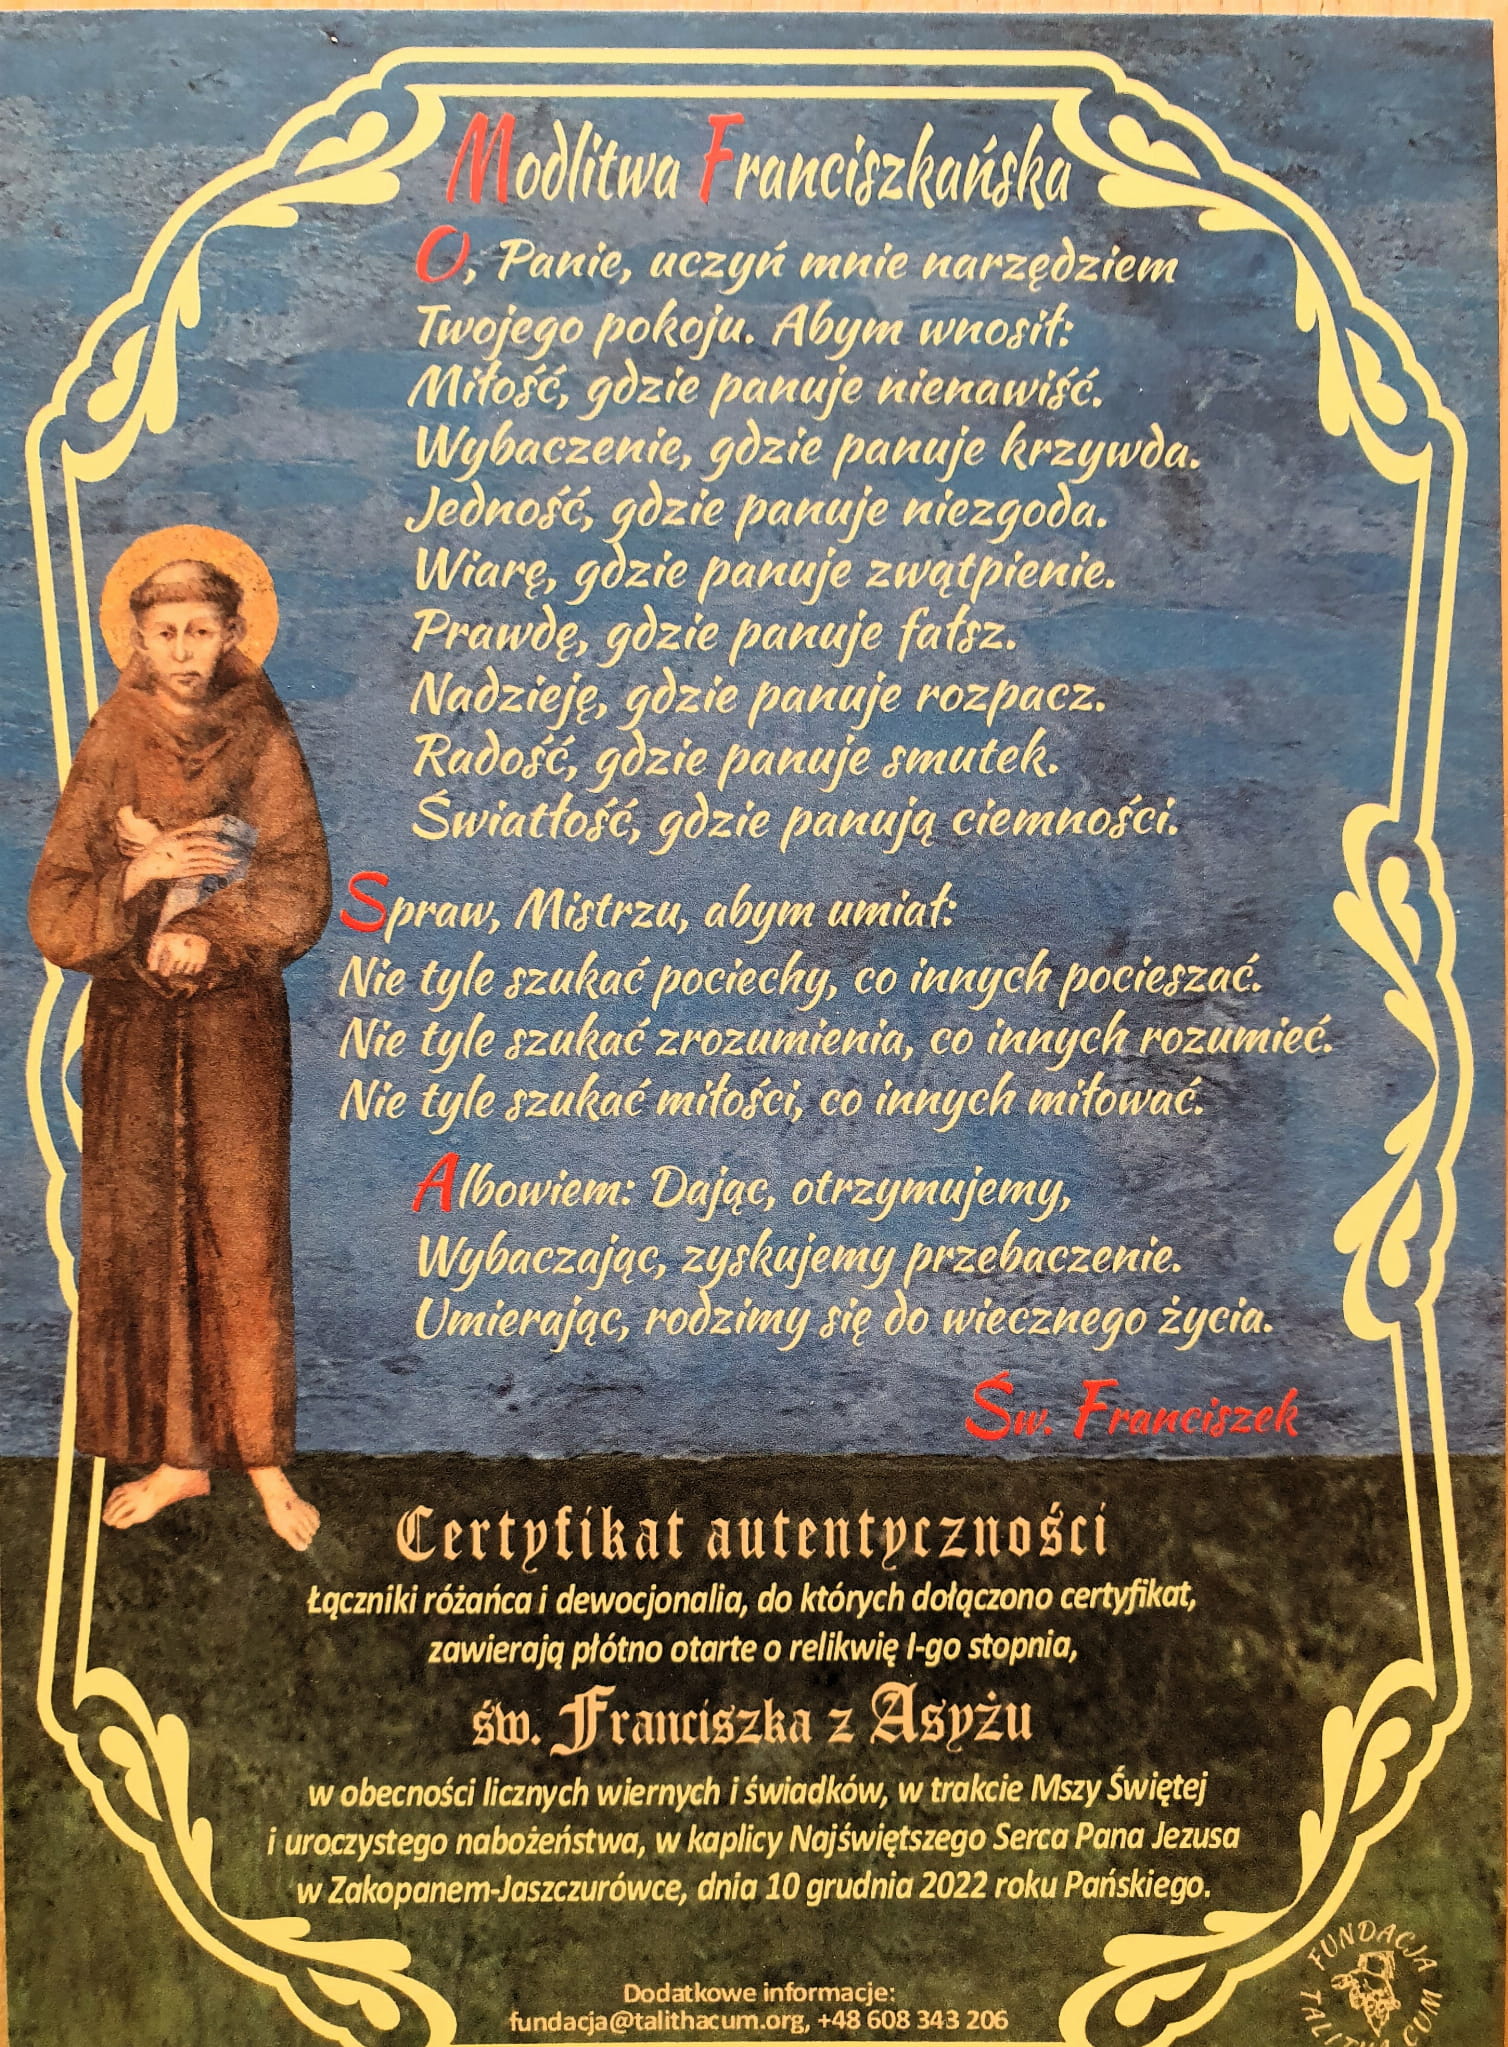 Modlitwa Franciszkańska
O, Panie, uczyń mnie narzędziem
Twojego pokoju. Abym wnosił:
Miłość, gdzie panuje nienawiść.
Wybaczenie, gdzie panuje krzywda.
Jedność, gdzie panuje niezgoda.
Wiarę, gdzie panuje zwątpienie.
Prawdę, gdzie panuje fałsz.
Nadzieję, gdzie panuje rozpacz.
Radość, gdzie panuje smutek.
Światłość, gdzie panują ciemności.
Spraw, Mistrzu, abym umiał:
Nie tyle szukać pociechy, co innych pocieszać.
Nie tyle szukać zrozumienia, co innych rozumieć.
Nie tyle szukać miłości, co innych miłować.
Albowiem: Dając, otrzymujemy,
Wybaczając, zyskujemy przebaczenie.
Umierając, rodzimy się do wiecznego życia.
Św. Franciszek
Certyfikat autentyczności
Łączniki różańca i dewocjonalia, do których dołączono certyfikat,
zawierają płótno otarte o relikwię I-go stopnia,
św. Franciszka z Asyżu
w obecności licznych wiernych i świadków, w trakcie Mszy Świętej
i uroczystego nabożeństwa, w kaplicy Najświętszego Serca Pana Jezusa
w Zakopanem-Jaszczurówce, dnia 10 grudnia 2022 roku Pańskiego.
Dodatkowe informacje:
fundacja@talithacum.org, +48 608 343 206
FUNDACJA
TALITHA CUM